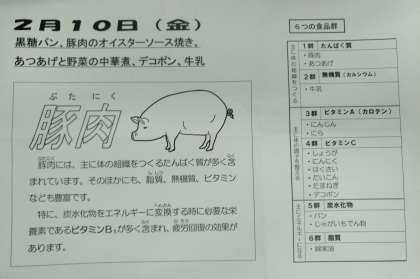 2月10日（金）
黒糖パン、豚肉のオイスターソース焼き、
あつあげと野菜の中華煮、デコポン、牛乳
ぶたにく
豚肉
豚肉には、主に体の組織をつくるたんぱく質が多く含
まれています。そのほかにも、脂質、無機質、ビタミン
なども豊富です。
特に、炭水化物をエネルギーに変換する時に必要な栄
養素であるビタミンB₁が多く含まれ、疲労回復の効果が
あります。
6つの食品群
主に体の組織をつくる
1群 たんぱく質
・豚肉
・あつあげ
2群 無機質（カルシウム）
・牛乳
主に体の調子を整える
3群 ビタミンA（カロテン）
・にんじん
・にら
4群 ビタミンC
・しょうが
・にんにく
・はくさい
・だいこん
・たまねぎ
・デコポン
主にエネルギーになる
5群 炭水化物
・パン
・じゃがいもでん粉
6群 脂質
・綿実油